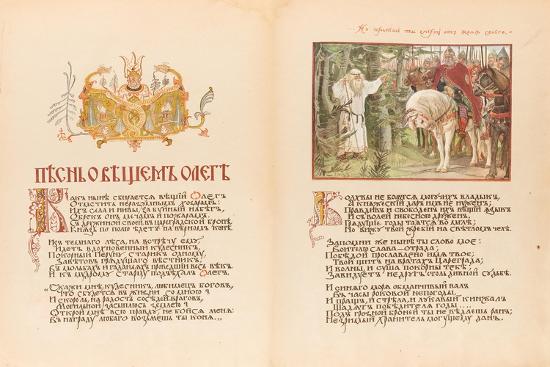 ПѢСНЬ О ВѢЩЕМЪ ОЛЕГѢ
Какъ нынѣ сбирается вѣщій Олегъ
Отмстить неразумнымъ хозарамъ:
Ихъ села и нивы за буйный набѣгъ
Обрекъ онъ мечамъ и пожарамъ.
Съ дружиной своей, въ цареградской бронѣ,
Князь по полю ѣдетъ на вѣрномъ конѣ.
Изъ темнаго лѣса, на встрѣчу ему,
Идетъ вдохновенный кудесникъ,
Покорный Перуну старикъ одному,
Завѣтовъ грядущаго вѣстникъ,
Въ мольбахъ и гаданьяхъ проведшій весь вѣкъ.
И къ мудрому старцу подъѣхалъ Олегъ.
«Скажи мнѣ, кудесникъ, любимецъ боговъ,
Что сбудется въ жизни со мною?
И скоро ль, на радость сосѣдей-враговъ,
Могильной засыплюсь землею?
Открой мнѣ всю правду, не бойся меня:
Въ награду любаго возьмешь ты коня...»
Но примешь ты смерть отъ коня своего.
Волхвы не боятся могучихъ владыкъ,
А княжескій даръ имъ не нуженъ;
Правдивъ и свободенъ ихъ вѣщій языкъ
И съ волей небесною друженъ.
Грядущіе годы таятся во мглѣ;
Но вижу твой жребій на свѣтломъ челѣ.
Запомни же нынѣ ты слово мое:
Воителю слава — отрада;
Побѣдой прославлено имя твое;
Твой щитъ на вратахъ Цареграда;
И волны и суша покорны тебѣ;
Завидуетъ недругъ столь дивной судьбѣ.
И синяго моря обманчивый валъ
Въ часы роковой непогоды,
И пращъ, и стрѣла, и лукавый кинжалъ
Щадятъ побѣдителя годы...
Подъ грозной броней ты не вѣдаешь ранъ;
Незримый хранитель могущему данъ.